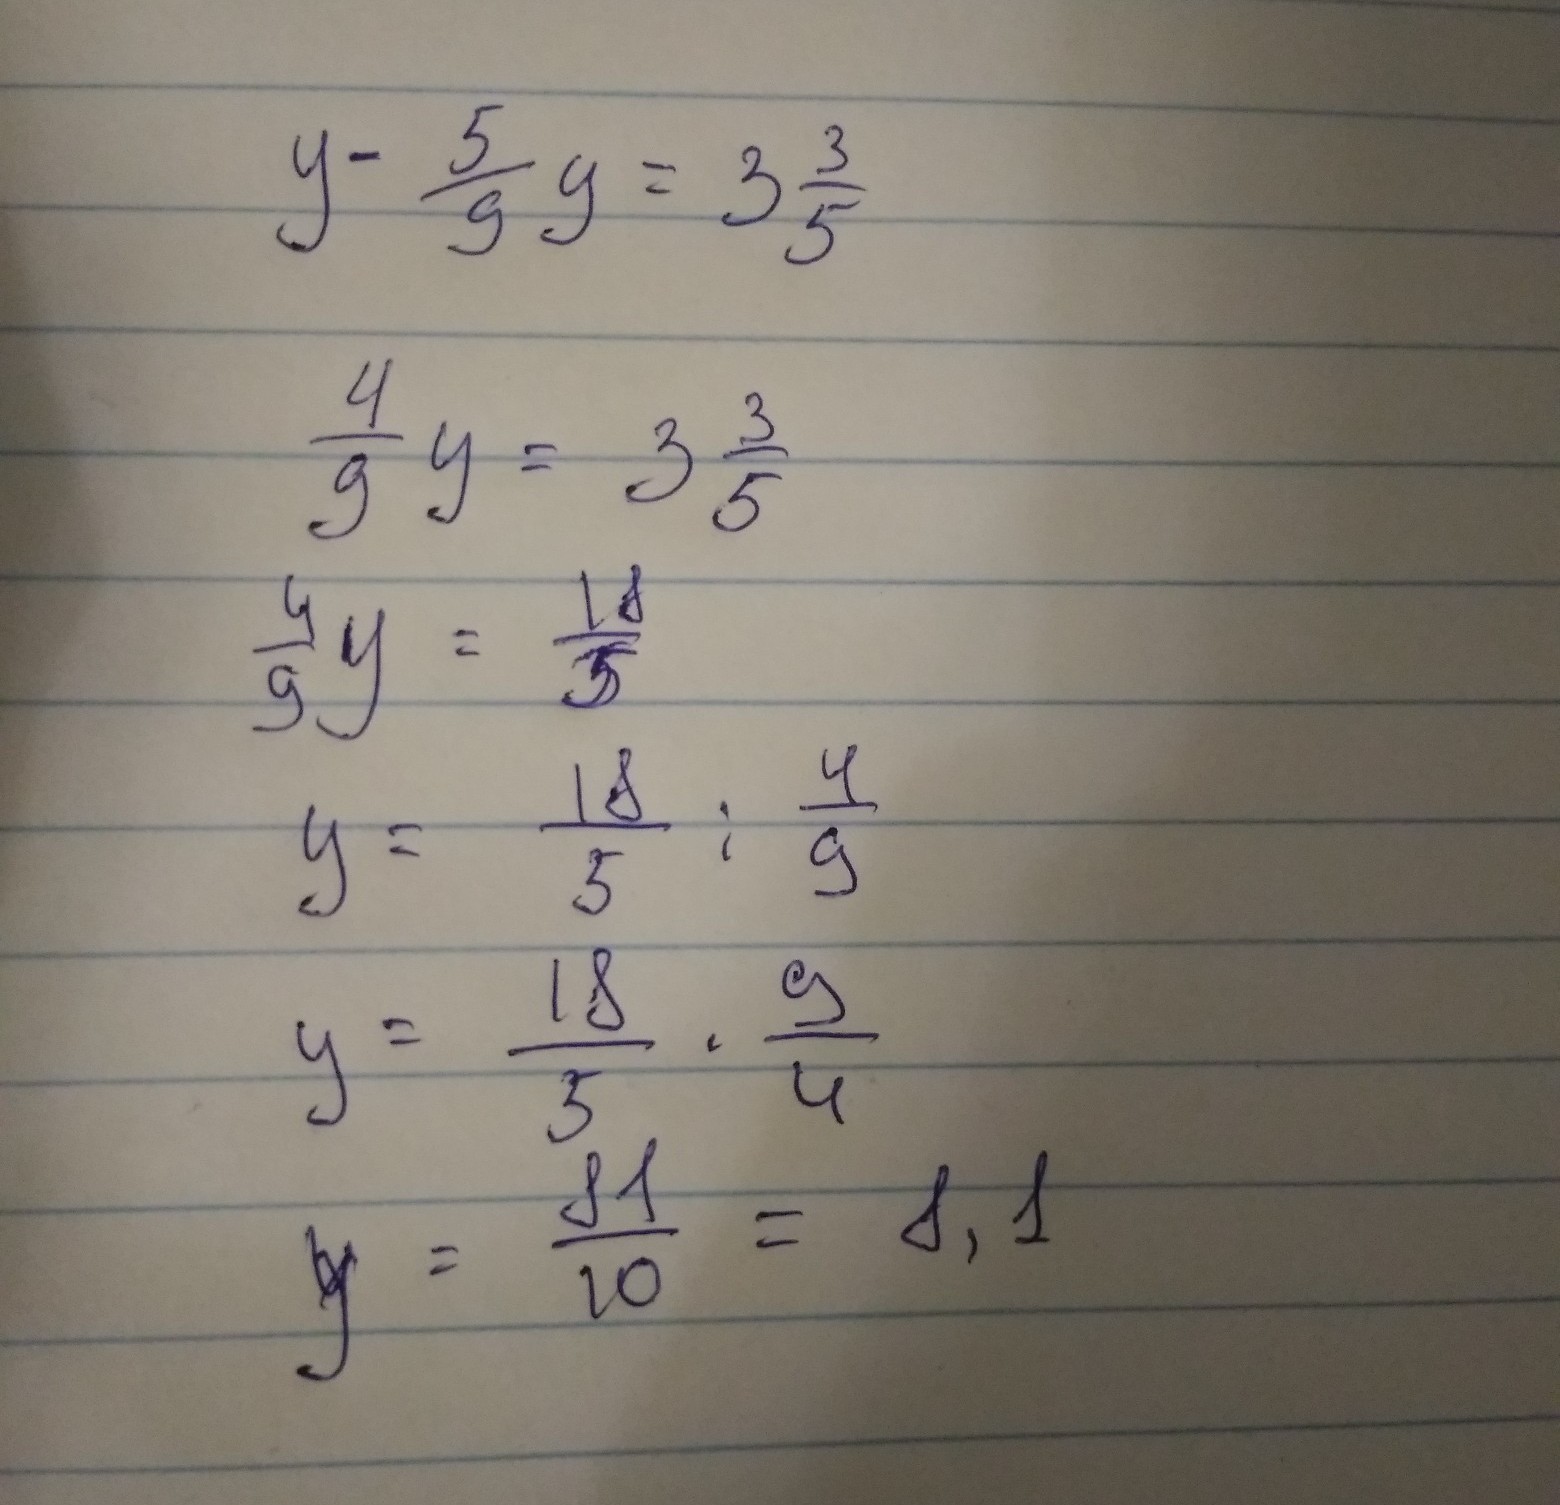 y - 5/9 y = 3 3/5
4/9 y = 3 3/5
4/9 y = 18/5
y = 18/5 : 4/9
y = 18/5 · 9/4
y = 81/10 = 8,1